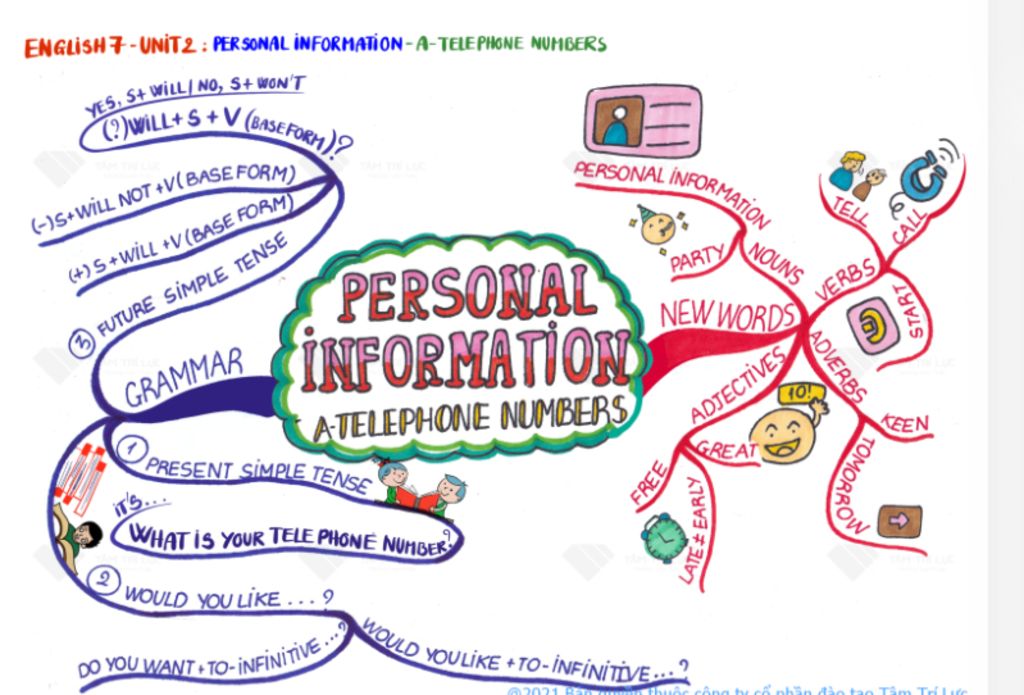 ENGLISH 7 - UNIT 2 : PERSONAL INFORMATION - A - TELEPHONE NUMBERS
PERSONAL
INFORMATION
A-TELEPHONE NUMBERS
GRAMMAR
1 PRESENT SIMPLE TENSE
IT'S...
WHAT IS YOUR TELEPHONE NUMBER?
2 WOULD YOU LIKE ...?
DO YOU WANT + TO - INFINITIVE...?
WOULD YOU LIKE + TO - INFINITIVE...?
3 FUTURE SIMPLE TENSE
(+) S + WILL + V (BASE FORM)
(-) S + WILL NOT + V (BASE FORM)
YES, S + WILL / NO, S + WON'T
(?) WILL + S + V (BASE FORM)?
NEW WORDS
NOUNS
PERSONAL INFORMATION
PARTY
VERBS
TELL
CALL
START
ADVERBS
KEEN
TOMORROW
ADJECTIVES
GREAT
10!
FREE
LATE ≠ EARLY
TÂM TRÍ LỰC
TÂM TRÍ LỰC
TÂM TRÍ LỰC
©2021 Bản quyền thuộc công ty cổ phần đào tạo Tâm Trí Lực